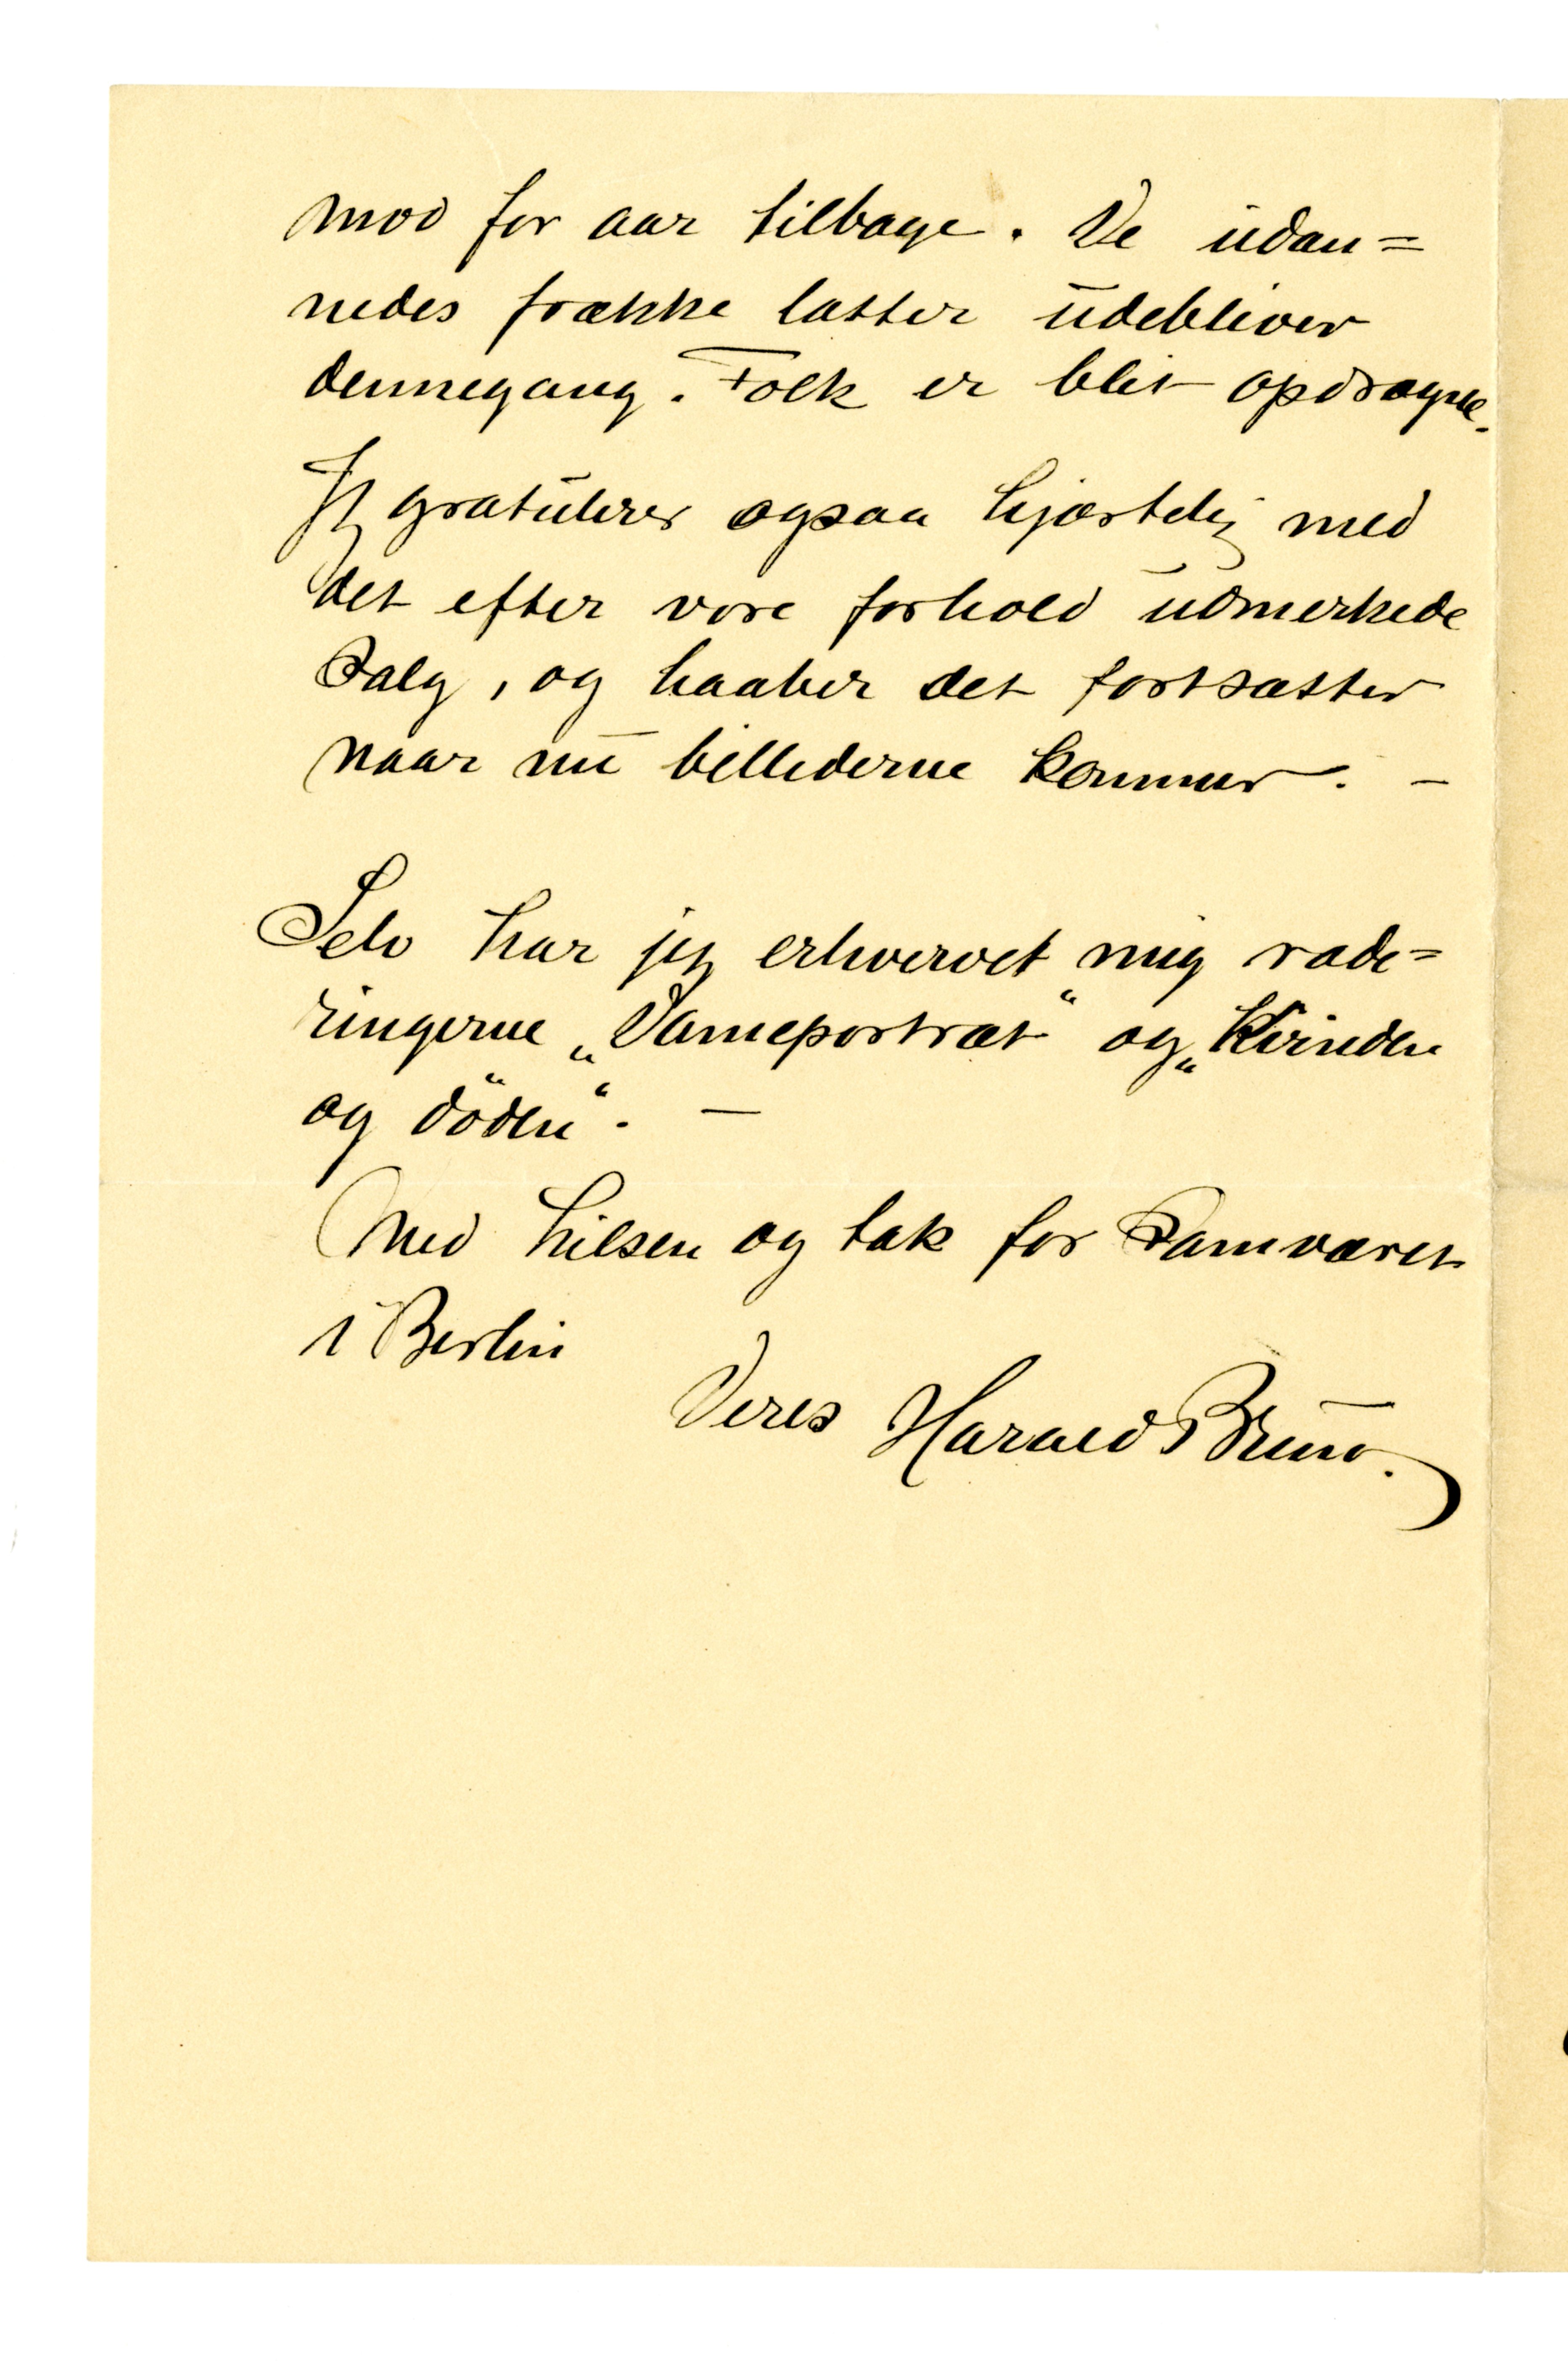 mod for aar tilbage. De udan=
nedes frække latter udebliver
dennegang. Folk er blit opdragne.
Jeg gratulerer ogsaa hjærtelig med
det efter vore forhold udmerkede
Salg, og haaber det fortsætter
naar nu billederne kommer. –
Selv har jeg erhvervet mig rade=
ringerne „Dameportræt“ og „Kvinden
og döden“. –
Med hilsen og tak for Samværet
i Berlin
Deres Harald Bruno.